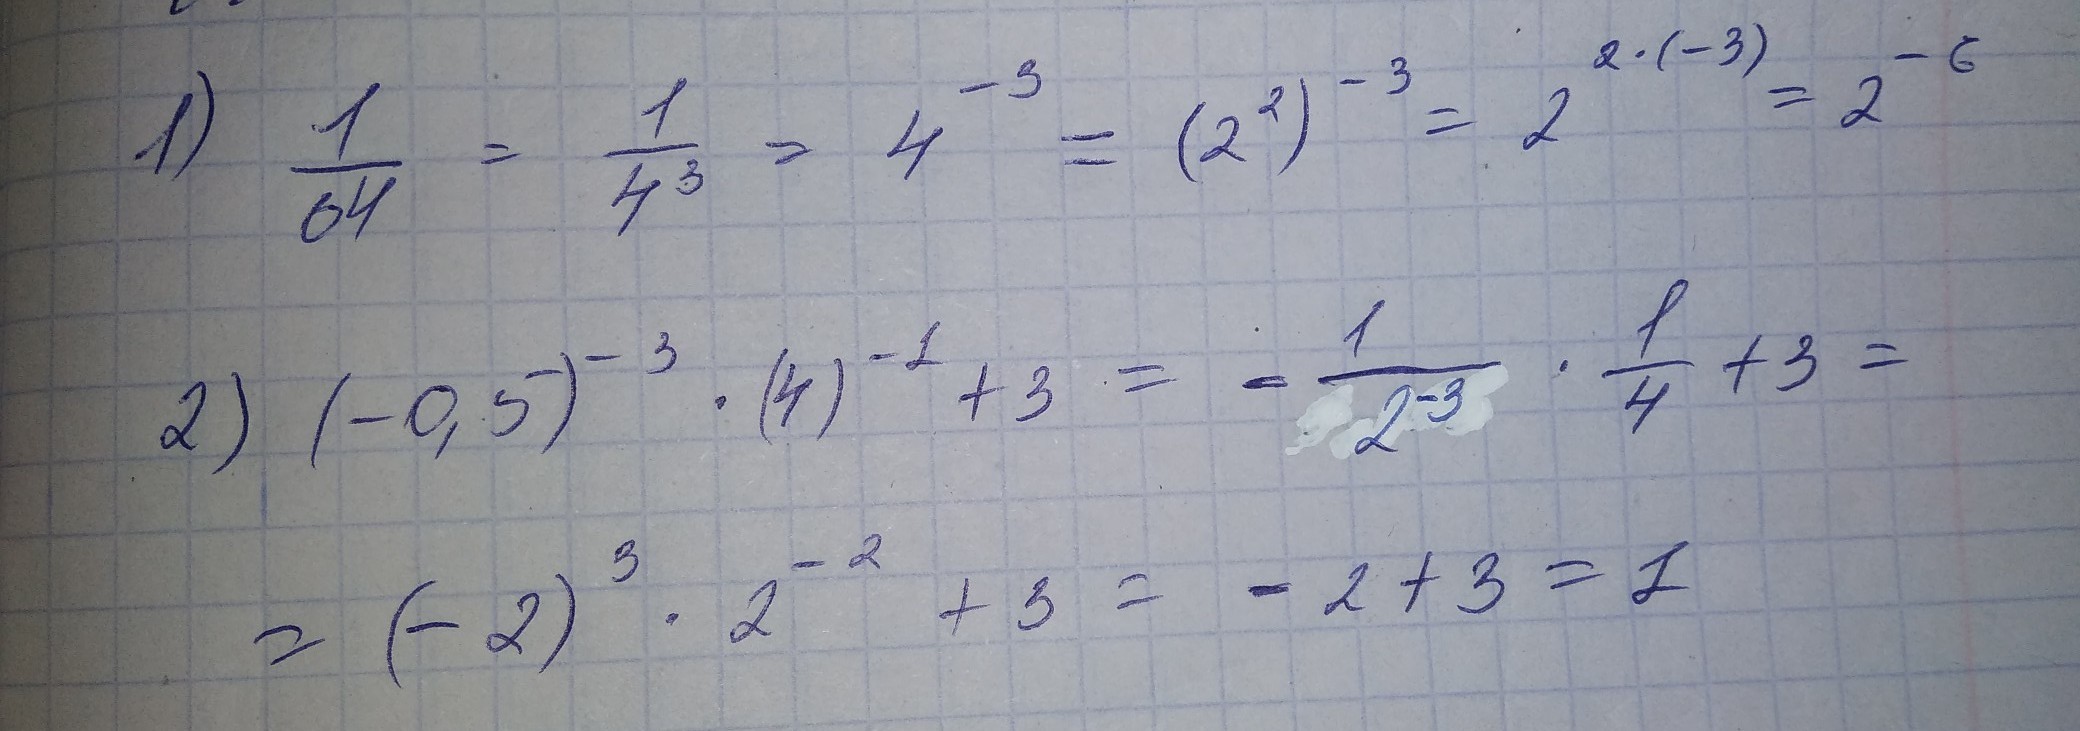 1) 1/64 = 1/4³ = 4⁻³ = (2²)⁻³ = 2^(2·(-3)) = 2⁻⁶
2) (-0,5)⁻³ · (4)⁻¹ + 3 = - 1/2⁻³ · 1/4 + 3 =
= (-2)³ · 2⁻² + 3 = - 2 + 3 = 1